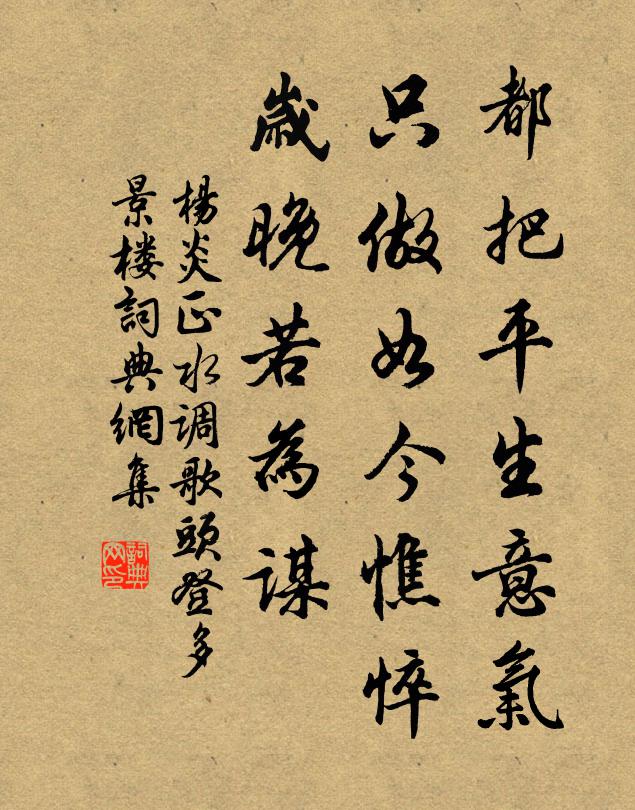 都把平生意氣
只做如今憔悴
歲晚若為謀
楊炎正水调歌頭登多
景樓詞典網集
詞典网印